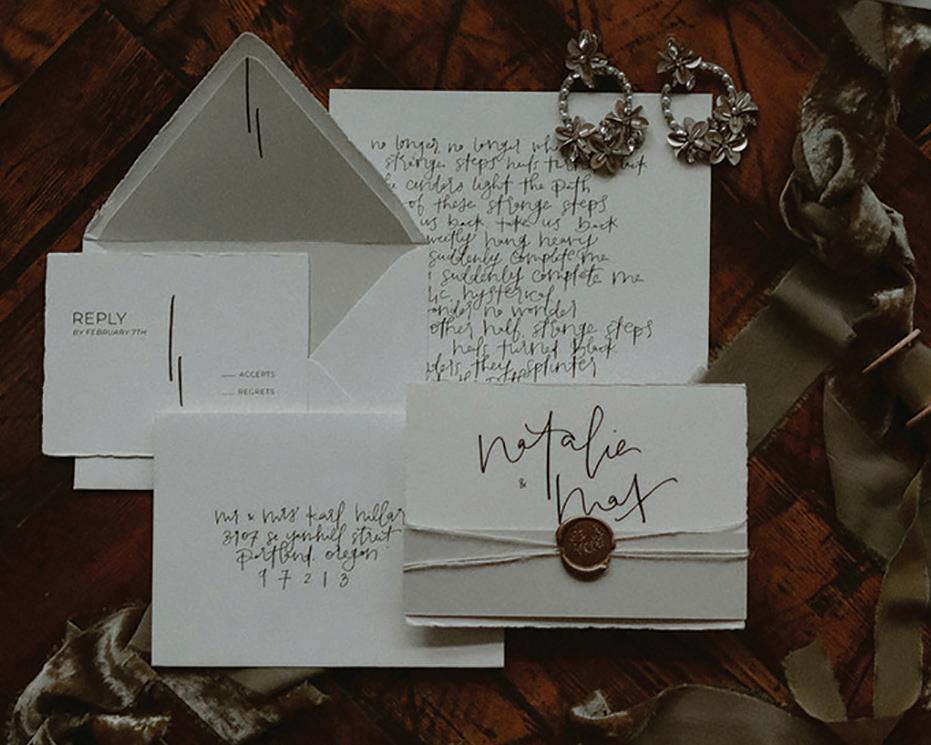 no longer no longer
strange steps heels turned black
cinders light the path
of these strange steps
us back take us back
sweetly hang heavy
suddenly complete me
suddenly complete me
hysterical
no wonder
other half, strange steps
heels turned black
they splinter
REPLY
BY FEBRUARY 7TH
ACCEPTS
REGRETS
natalie
&
mat
mr & mrs karl hillar
3907 se yamhill street
portland oregon
97213